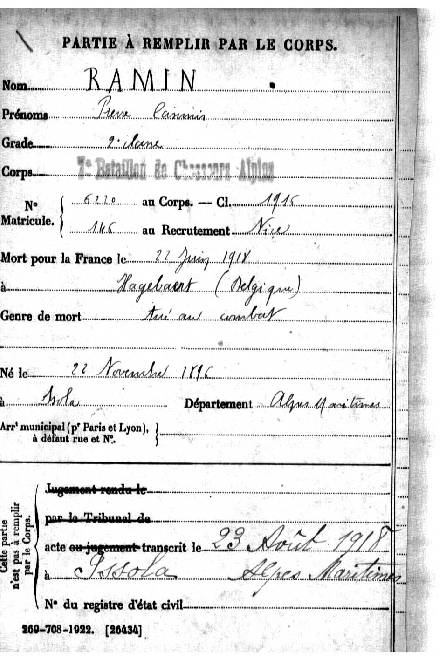 PARTIE À REMPLIR PAR LE CORPS.
Nom RAMIN
Prénoms Pierre Casimir
Grade 2e classe
Corps 7e Bataillon de Chasseurs Alpins
N° Matricule. { 6220 au Corps. — Cl. 1916
146 au Recrutement Nice
Mort pour la France le 22 Juin 1918
à Hagebaert (Belgique)
Genre de mort tué au combat
Né le 22 Novembre 1896
à Isola Département Alpes Maritimes
Arrt municipal (pr Paris et Lyon), à défaut rue et N°.
Cette partie n'est pas à remplir par le Corps.
Jugement rendu le
par le Tribunal de
acte ou jugement transcrit le 23 Août 1918
à Issola Alpes Maritimes
N° du registre d'état civil
269-708-1922. [26434]